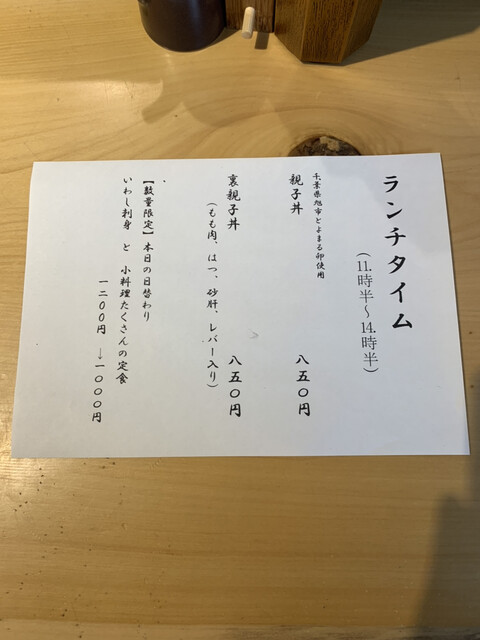 ランチタイム
（11.時半～14.時半）
千葉県旭市とよまる卵使用
親子丼　八五〇円
裏親子丼　八五〇円
（もも肉、はつ、砂肝、レバー入り）
【数量限定】本日の日替わり
いわし刺身　と　小料理たくさんの定食
一二〇〇円　→一〇〇〇円